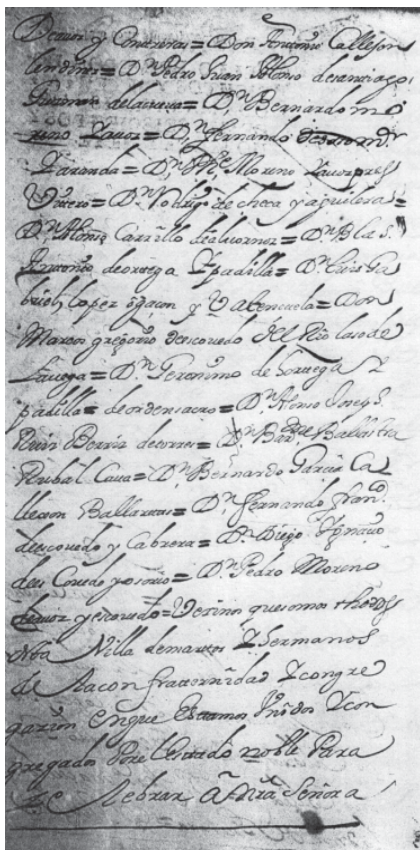 de Muñoz y Contreras = Don Antonio Callejon
= Dn. Pedro Juan Alonso de santiago,
= Dn. Bernardo mo
reno = Dn. Fernando
Varanda = Dn. Moreno
= Dn. Rodrigo de checa y aguilera =
Dn. Alonso Carrillo de albornoz = Dn. Blas
Antonio de ortega Y padilla = Dn. Luis Ga
briel lopez y Valençuela = Don
Marcos gregorio descovedo del Rio laso de
Lavega = Dn. Geronimo de hortega Y
padilla = de orden sacro = Dn. Alonso Joseph
Ruiz Berriz de torres = Dn. Barme Ballastra
Rubal Cava = Dn. Bernardo Garcia Ca
llexon Ballartas = Dn. Fernando Franco.
descovedo y Cabrera = Dn. Diego Ygnacio
des Covedo y osorio = Dn. Pedro Moreno
y escovedo = Vezinos que somos thodos
Nra Villa de martos Y hermanos
de La con fratternidad Y congre
gazion en que Estamos Unidos Y con
gregados Por el estado noble Para
Ze lebrar A Nra Señora